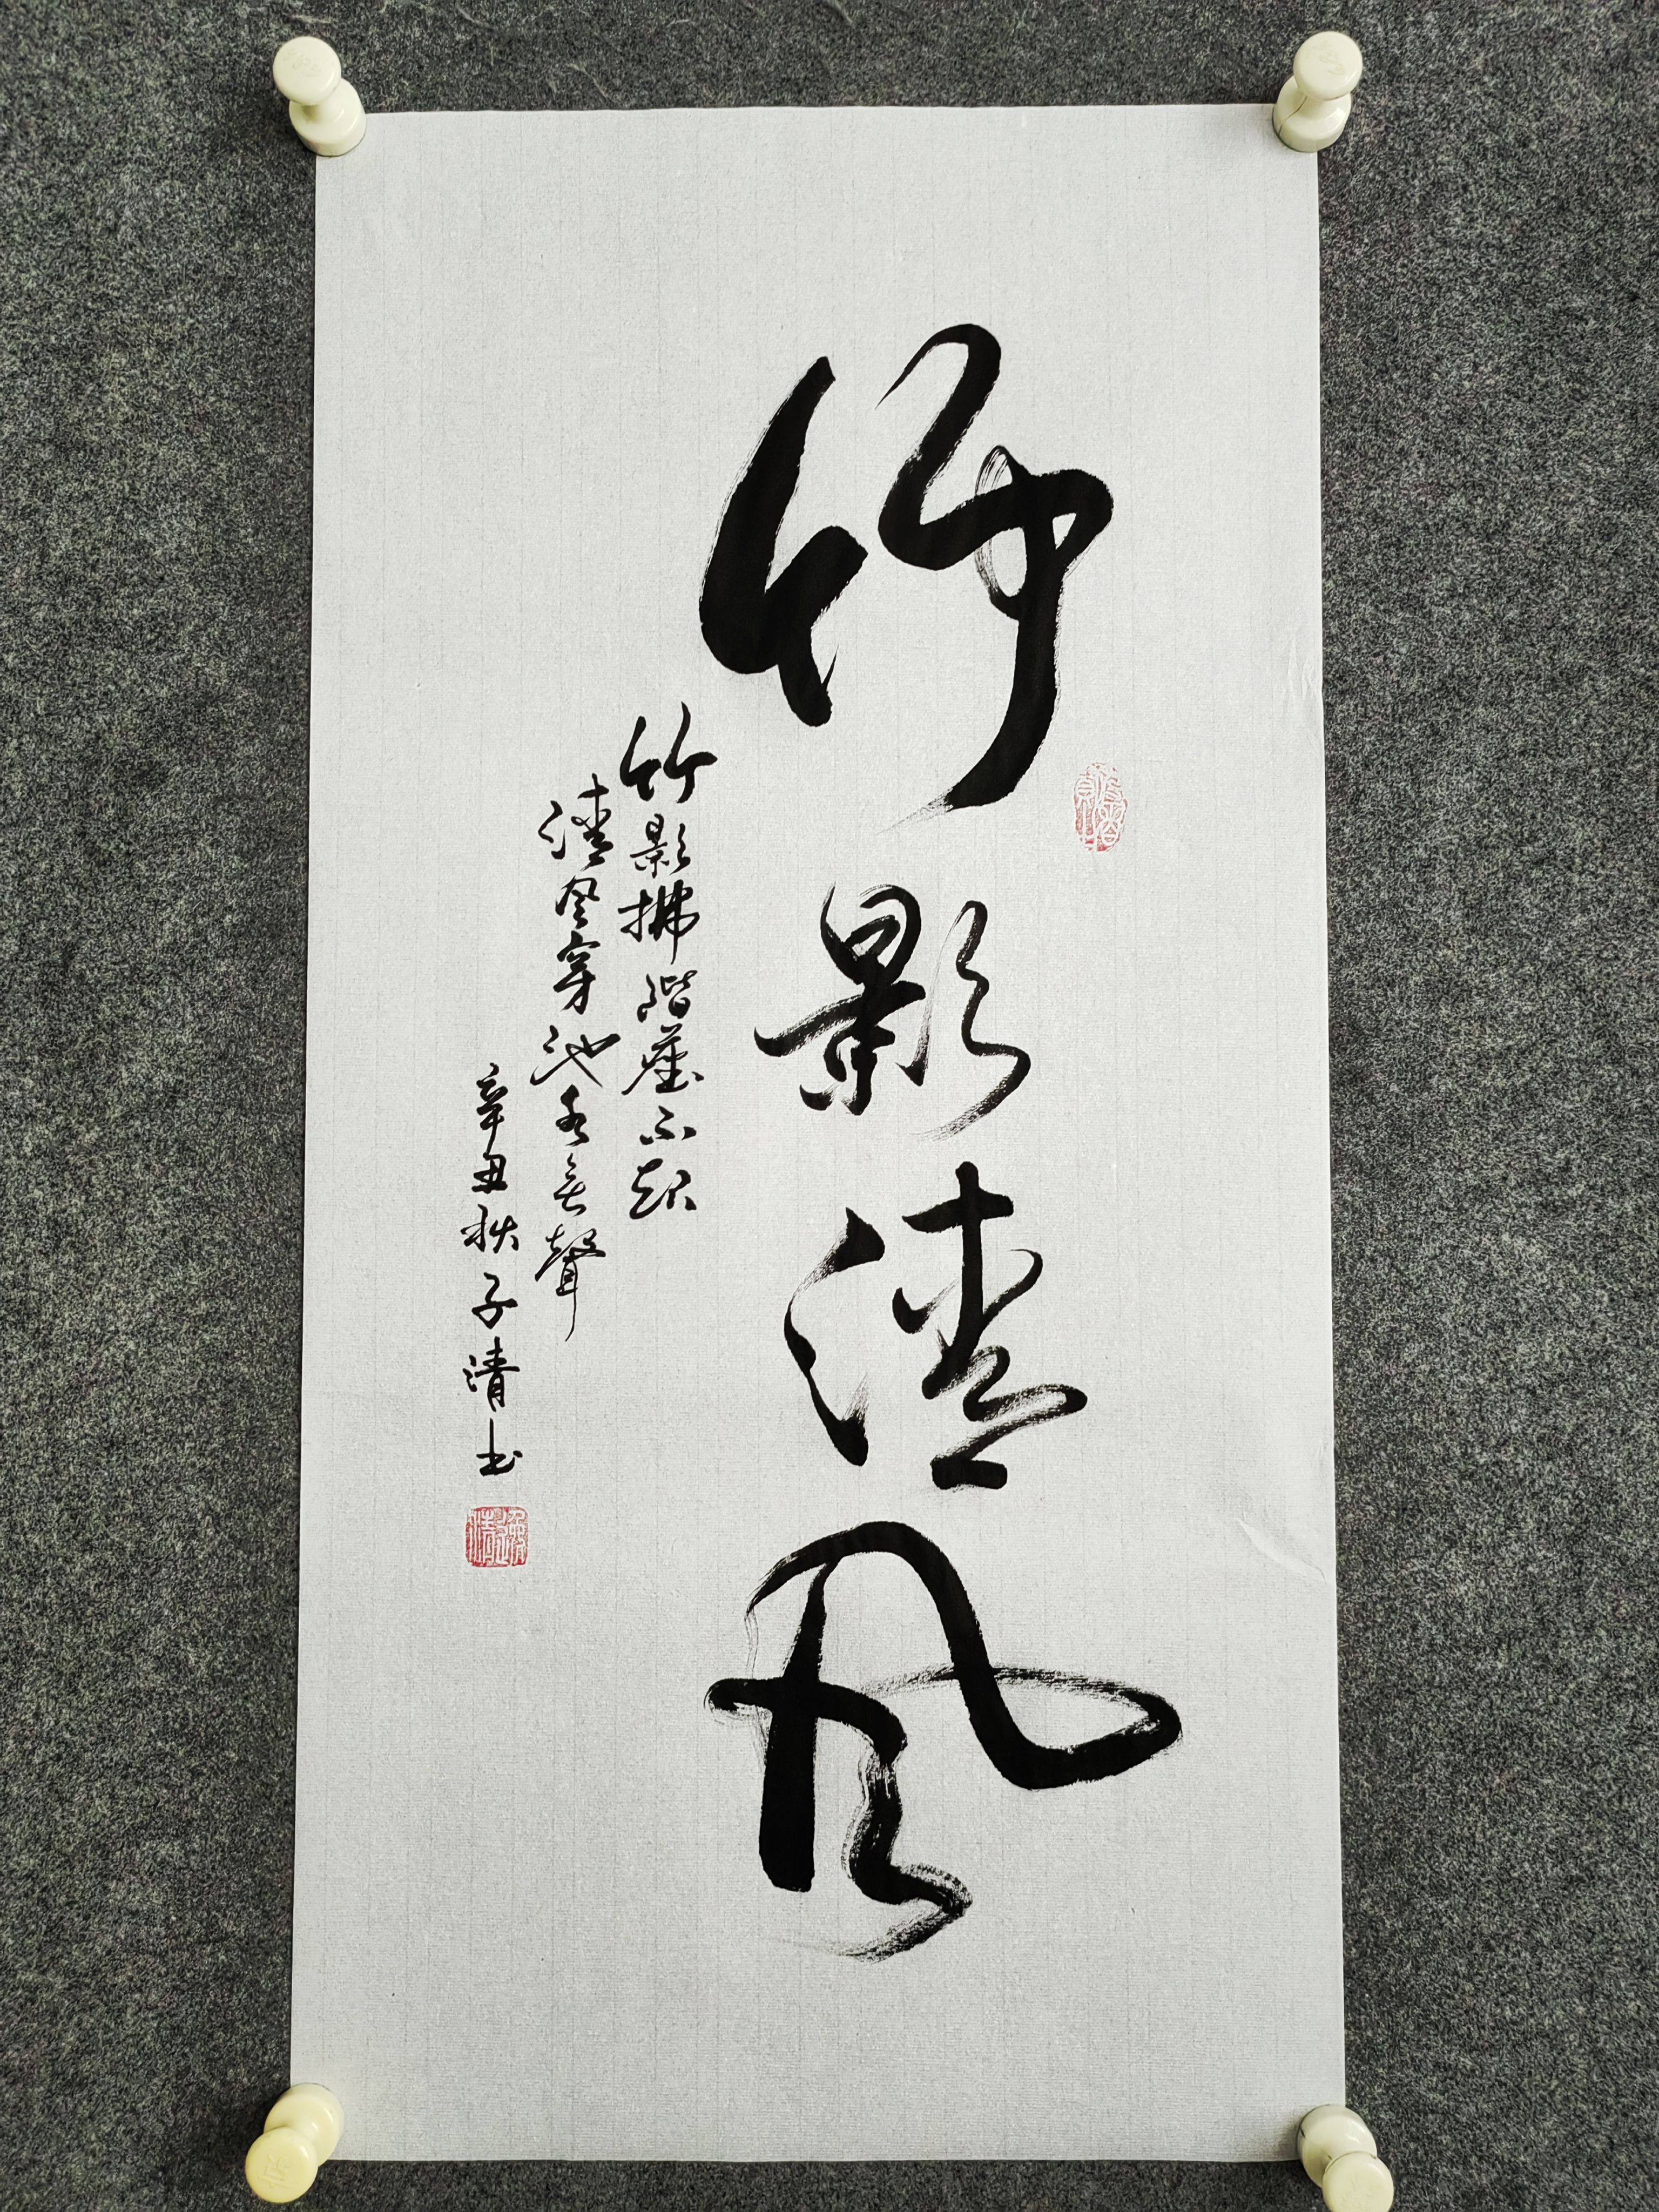 竹影清风
竹影拂階塵不起
清風穿池水無聲
辛丑秋子清书